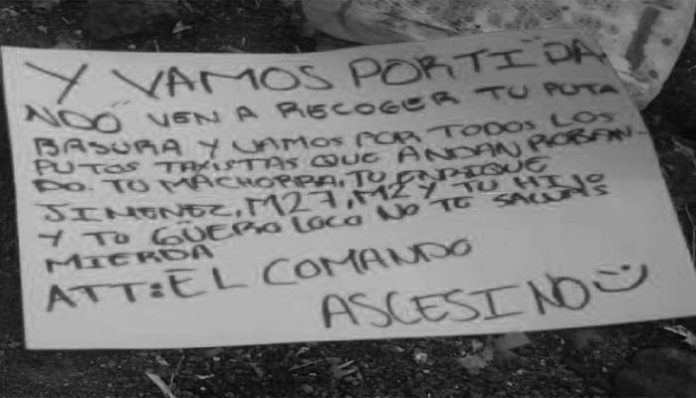 Y VAMOS POR TI "DA
NDO" VEN A RECOGER TU PUTA
BASURA Y VAMOS POR TODOS LOS
PUTOS TAXISTAS QUE ANDAN ROBAN-
DO. TU MACHORRA, TU ENRIQUE
JIMENEZ, M27, M2 Y TU HIJO
Y TU GÜERO LOCO NO TE SALVAS
MIERDA
ATT: EL COMANDO
ASCESINO